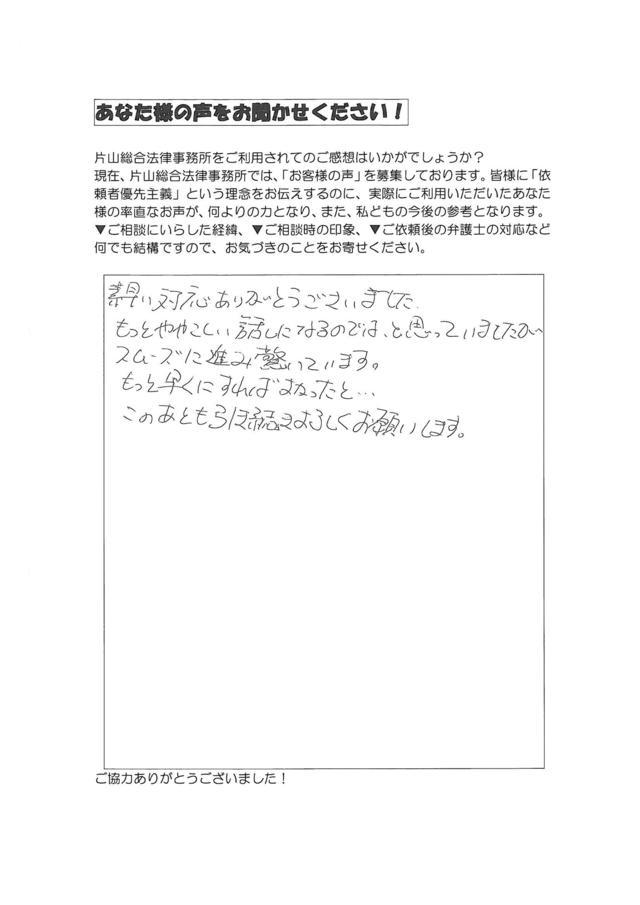 あなた様の声をお聞かせください！
片山総合法律事務所をご利用されてのご感想はいかがでしょうか？
現在、片山総合法律事務所では、「お客様の声」を募集しております。皆様に「依
頼者優先主義」という理念をお伝えするのに、実際にご利用いただいたあなた
様の率直なお声が、何よりの力となり、また、私どもの今後の参考となります。
▼ご相談にいらした経緯、▼ご相談時の印象、▼ご依頼後の弁護士の対応など
何でも結構ですので、お気づきのことをお寄せください。
素早い対応ありがとうございました
もっとややこしい話しになるのでは、と思っていましたが
スムーズに進み驚いています。
もっと早くにすればよかったと…
このあともよろしくお願いします。
ご協力ありがとうございました！